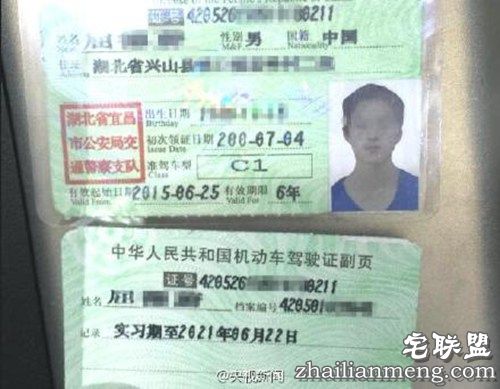 证号 420526 0211
姓名 屈 性别 男 国籍 中国
M&F. Nationality
住址 湖北省兴山县
湖北省宜昌
市公安局交
通警察支队
出生日期
Birthday
初次领证日期 200-07-04
Issue Date
准驾车型 C1
Class
有效起始日期 2015-06-25 有效期限 6年
Valid From Valid For
中华人民共和国机动车驾驶证副页
证号 420526 0211
姓名 屈 档案编号 420501
记录 实习期至2021年06月22日
@央视新闻
宅联盟
zhailianmeng.com